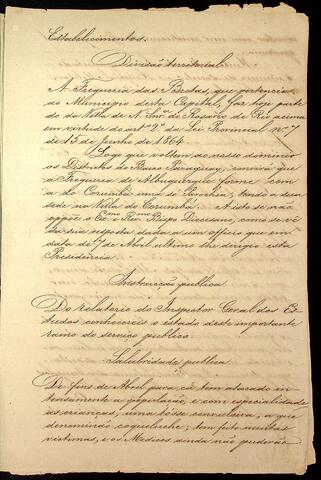 Estabelecimentos.
Divisão territorial
A Freguezia das Brotas, que pertencia
ao Municipio desta Capital, faz hoje parte
do da Villa de N. Snrª do Rosario do Rio acima
em virtude do artº 2º da Lei Provincial nº 7
de 15 de Junho de 1864.
Logo que voltem ao nosso dominio
os Districtos do Baixo Paraguay, convirá que
a Freguezia de Albuquerque forme com
a do Corumbá uma só Parochia, tendo a sua
sede na Villa de Corumbá. A isto se não
oppõe o Exmo e Revmo Bispo Diocesano, como se vê
da sua resposta dada a um officio que em
data de 7 de Abril ultimo lhe dirigio esta
Presidencia.
Instrucção publica
Do relatorio do Inspector Geral dos Es-
tudos conhecereis o estado deste importante
ramo do serviço publico.
Salubridade publica
De fins de Abril para cá tem atacado in-
tensamente a população, e com especialidade
as crianças, uma tosse convulsiva, a que
denominão coqueluche; tem feito muitas
victimas, e os Medicos ainda não puderão